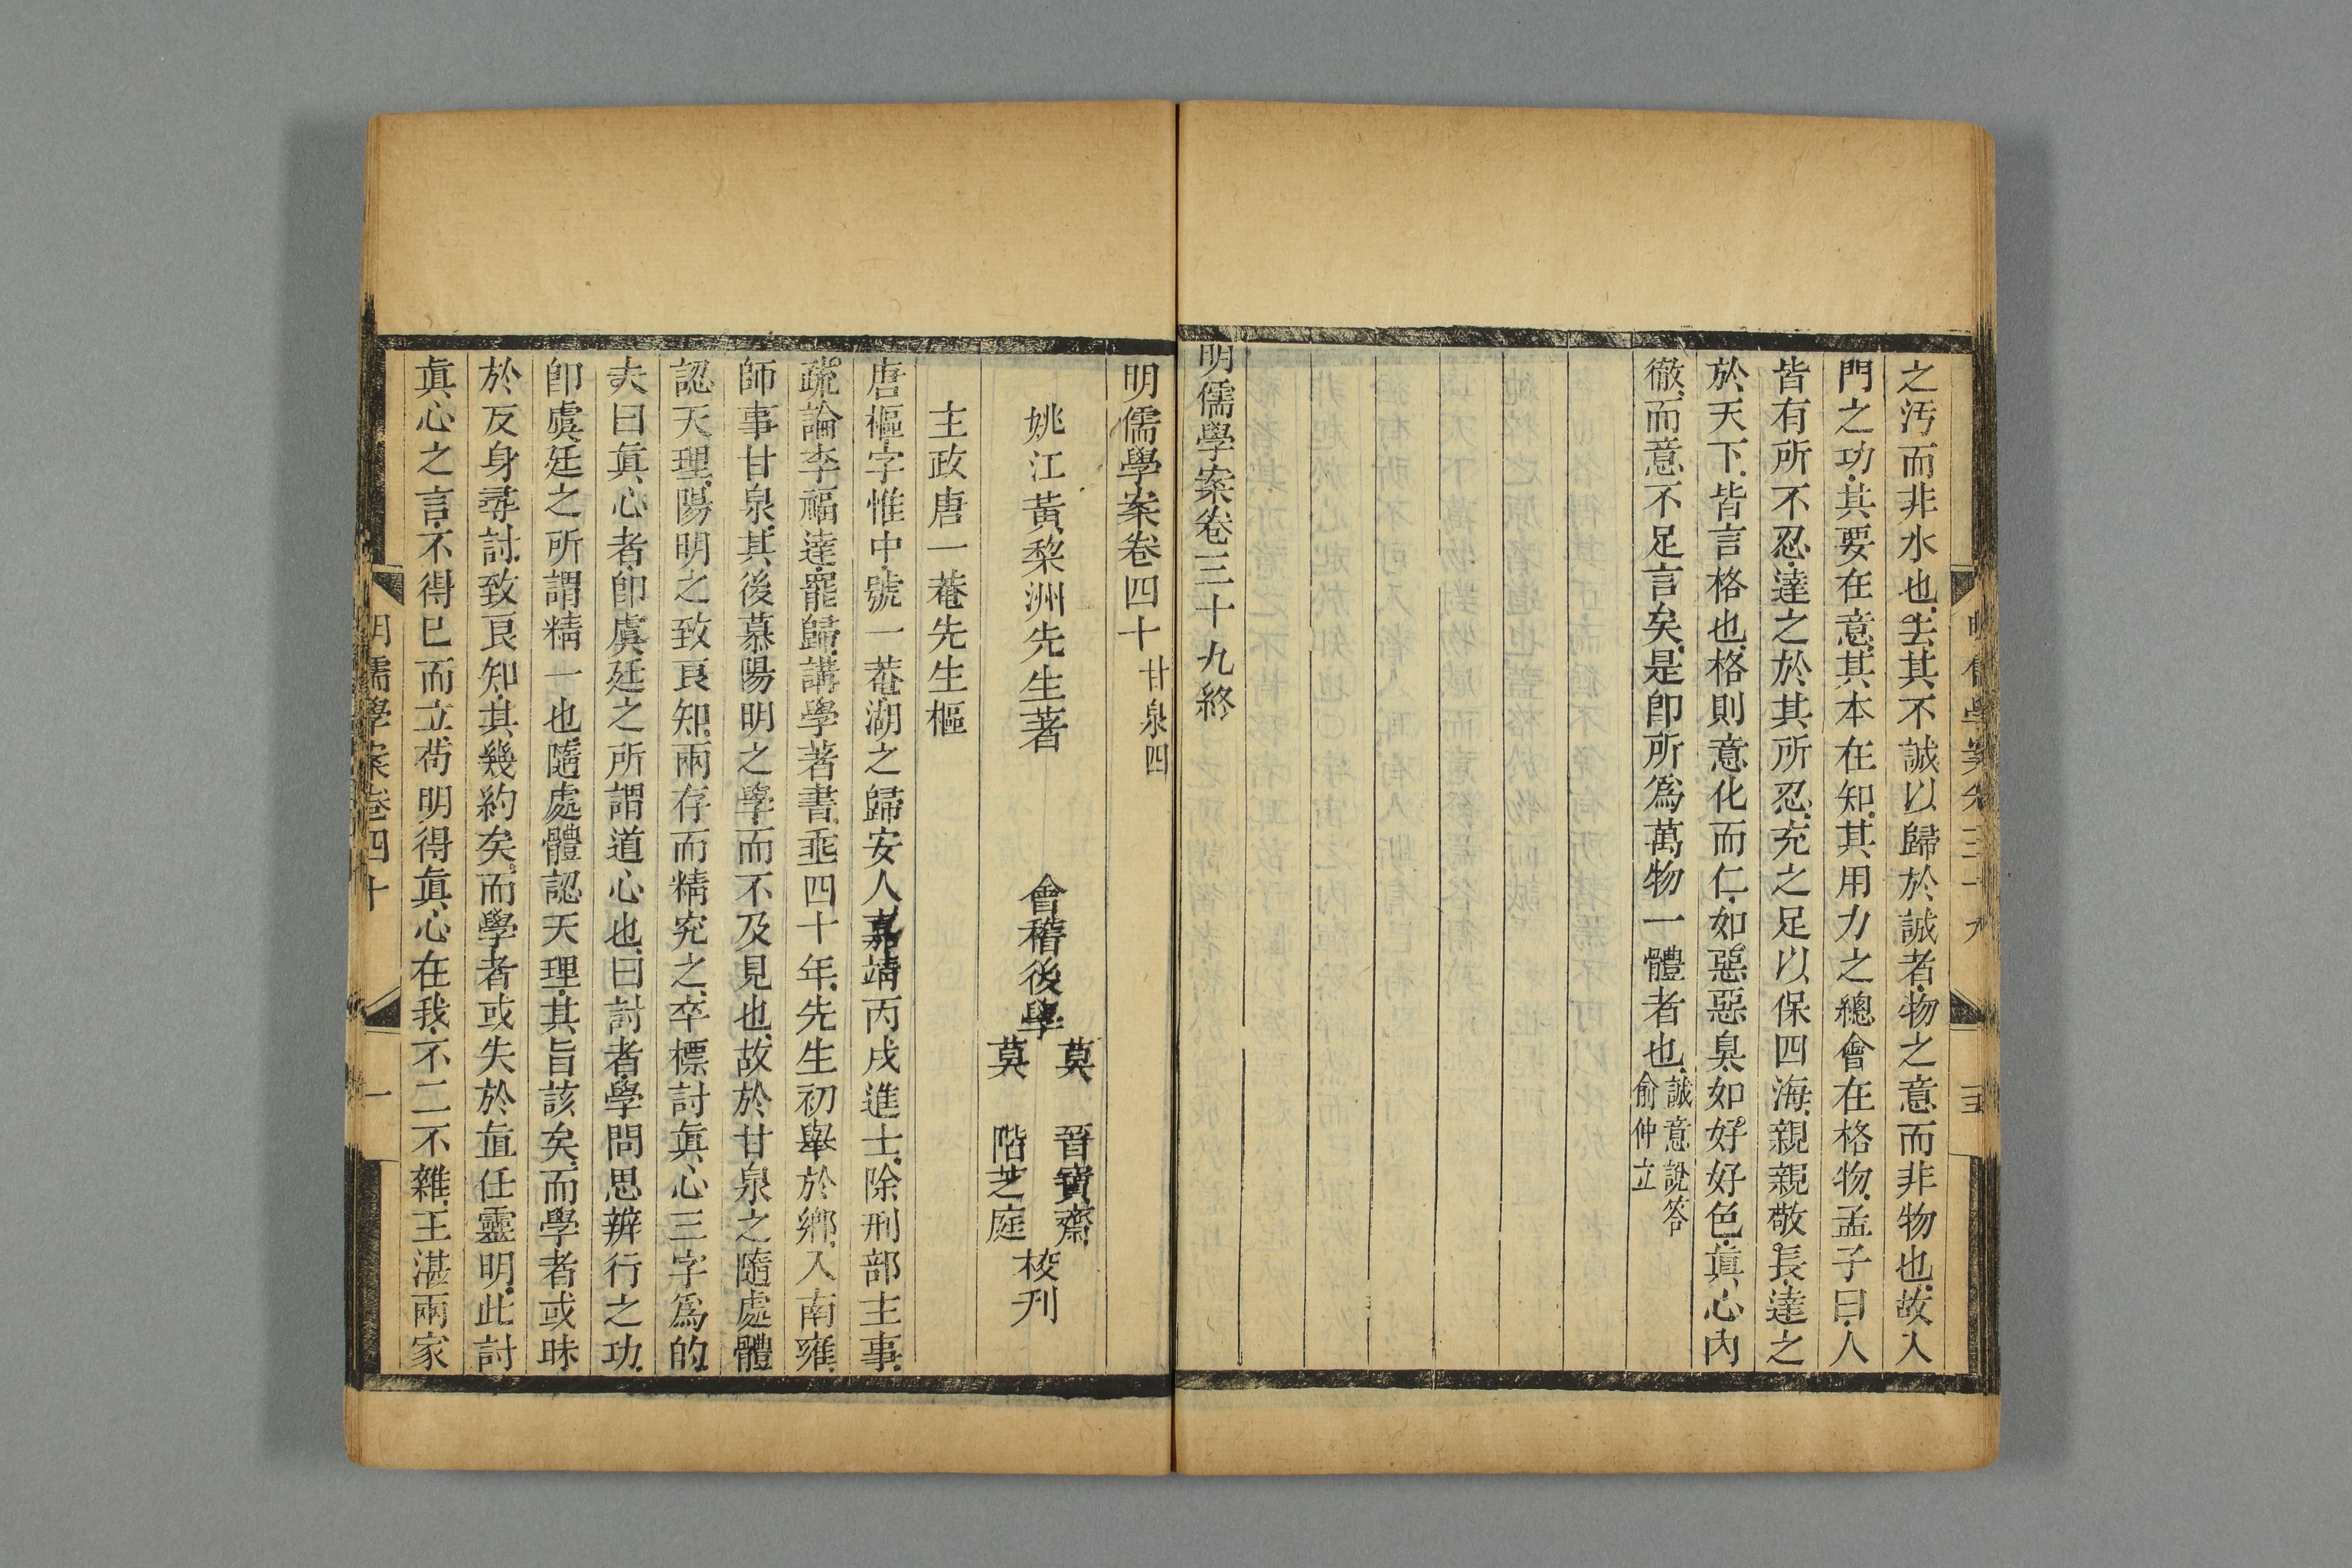 之汚而非水也去其不誠以歸於誠者物之意而非物也故入
門之功其要在意其本在知其用力之總會在格物孟子曰人
皆有所不忍達之於其所忍充之足以保四海親親敬長達之
於天下皆言格也格則意化而仁如惡惡臭如好好色眞心內
徹而意不足言矣是卽所爲萬物一體者也誠意說答
俞仲立
明儒學案卷三十九終
明儒學案卷四十 甘泉四
姚江黃棃洲先生著 會稽後學
莫 晉寶齋
莫 階芝庭
校刊
主政唐一菴先生樞
唐樞字惟中號一菴湖之歸安人嘉靖丙戌進士除刑部主事
疏論李福達罷歸講學著書垂四十年先生初舉於鄉入南雍
師事甘泉其後慕陽明之學而不及見也故於甘泉之隨處體
認天理陽明之致良知兩存而精究之卒標討眞心三字爲的
夫曰眞心者卽虞廷之所謂道心也曰討者學問思辨行之功
卽虞廷之所謂精一也隨處體認天理其旨該矣而學者或昧
於反身尋討致良知其幾約矣而學者或失於直任靈明此討
眞心之言不得已而立苟明得眞心在我不二不雜王湛兩家
明儒學案卷四十
一